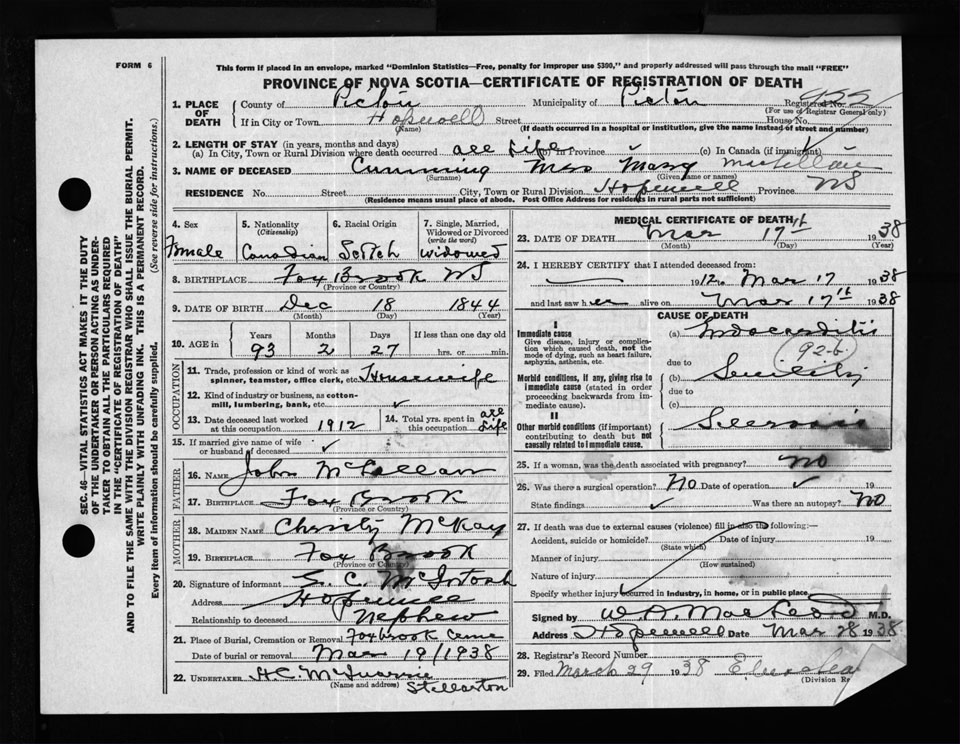 FORM 6
This form if placed in an envelope, marked "Dominion Statistics—Free, penalty for improper use $300," and properly addressed will pass through the mail "FREE"
PROVINCE OF NOVA SCOTIA—CERTIFICATE OF REGISTRATION OF DEATH
SEC. 46—VITAL STATISTICS ACT MAKES IT THE DUTY
OF THE UNDERTAKER OR PERSON ACTING AS UNDER-
TAKER TO OBTAIN ALL THE PARTICULARS REQUIRED
IN THE "CERTIFICATE OF REGISTRATION OF DEATH"
AND TO FILE THE SAME WITH THE DIVISION REGISTRAR WHO SHALL ISSUE THE BURIAL PERMIT.
WRITE PLAINLY WITH UNFADING INK. THIS IS A PERMANENT RECORD.
Every item of information should be carefully supplied. (See reverse side for instructions.)
1. PLACE OF DEATH County of Pictou Municipality of Pictou Registered No. 955
(For use of Registrar General only)
If in City or Town Hopewell Street House No.
(Name) (If death occurred in a hospital or institution, give the name instead of street and number)
2. LENGTH OF STAY (in years, months and days)
(a) In City, Town or Rural Division where death occurred all life (b) In Province (c) In Canada (if immigrant)
3. NAME OF DECEASED Cumming Mrs Mary
(Surname) (Given name or names)
RESIDENCE No. Street City, Town or Rural Division Hopewell Province NS
(Residence means usual place of abode. Post Office Address for residents in rural parts not sufficient)
4. Sex Female
5. Nationality (Citizenship) Canadian
6. Racial Origin Scotch
7. Single, Married, Widowed or Divorced (write the word) widowed
8. BIRTHPLACE Fox Brook NS
(Province or Country)
9. DATE OF BIRTH Dec 18 1844
(Month) (Day) (Year)
10. AGE in Years 93 Months 2 Days 27 If less than one day old hrs. or min.
OCCUPATION
11. Trade, profession or kind of work as spinner, teamster, office clerk, etc. Housewife
12. Kind of industry or business, as cotton-mill, lumbering, bank, etc. ✓
13. Date deceased last worked at this occupation 1912
14. Total yrs. spent in this occupation all life
15. If married give name of wife or husband of deceased ✓
FATHER
16. NAME John McLellan
17. BIRTHPLACE Fox Brook
(Province or Country)
MOTHER
18. MAIDEN NAME Christy McKay
19. BIRTHPLACE Fox Brook
(Province or Country)
20. Signature of informant S. C. McIntosh
Address Hopewell
Relationship to deceased Nephew
21. Place of Burial, Cremation or Removal Foxbrook Ceme
Date of burial or removal Mar 19/1938
22. UNDERTAKER Stellarton
(Name and address)
MEDICAL CERTIFICATE OF DEATH
23. DATE OF DEATH Mar 17th 1938
(Month) (Day) (Year)
24. I HEREBY CERTIFY that I attended deceased from:
1912 to Mar 17 1938
and last saw her alive on Mar 17th 1938
CAUSE OF DEATH
I
Immediate cause
Give disease, injury or complication which caused death, not the mode of dying, such as heart failure, asphyxia, asthenia, etc.
(a) Endocarditis
92-b
due to
Morbid conditions, if any, giving rise to immediate cause (stated in order proceeding backwards from immediate cause).
(b) Senility
due to
(c)
II
Other morbid conditions (if important) contributing to death but not causally related to immediate cause.
25. If a woman, was the death associated with pregnancy? No
26. Was there a surgical operation? No Date of operation ✓ 19
State findings ✓ Was there an autopsy? No
27. If death was due to external causes (violence) fill in also the following:
Accident, suicide or homicide? Date of injury 19
(State which)
Manner of injury
(How sustained)
Nature of injury
Specify whether injury occurred in Industry, in home, or in public place
Signed by W. A. MacLeod M.D.
Address Hopewell Date Mar 28 1938
28. Registrar's Record Number
29. Filed March 29 1938
(Division Re